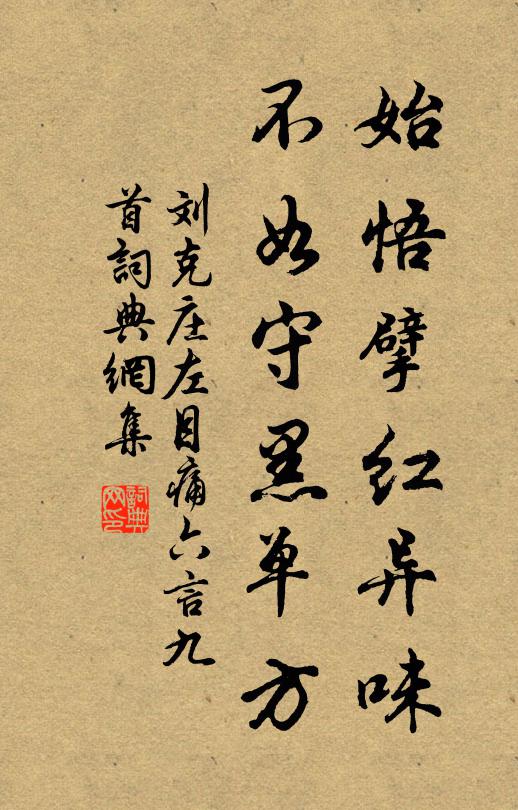 始悟擘红异味
不如守黑单方
刘克庄左目痛六言九
首詞典網集
詞典网印